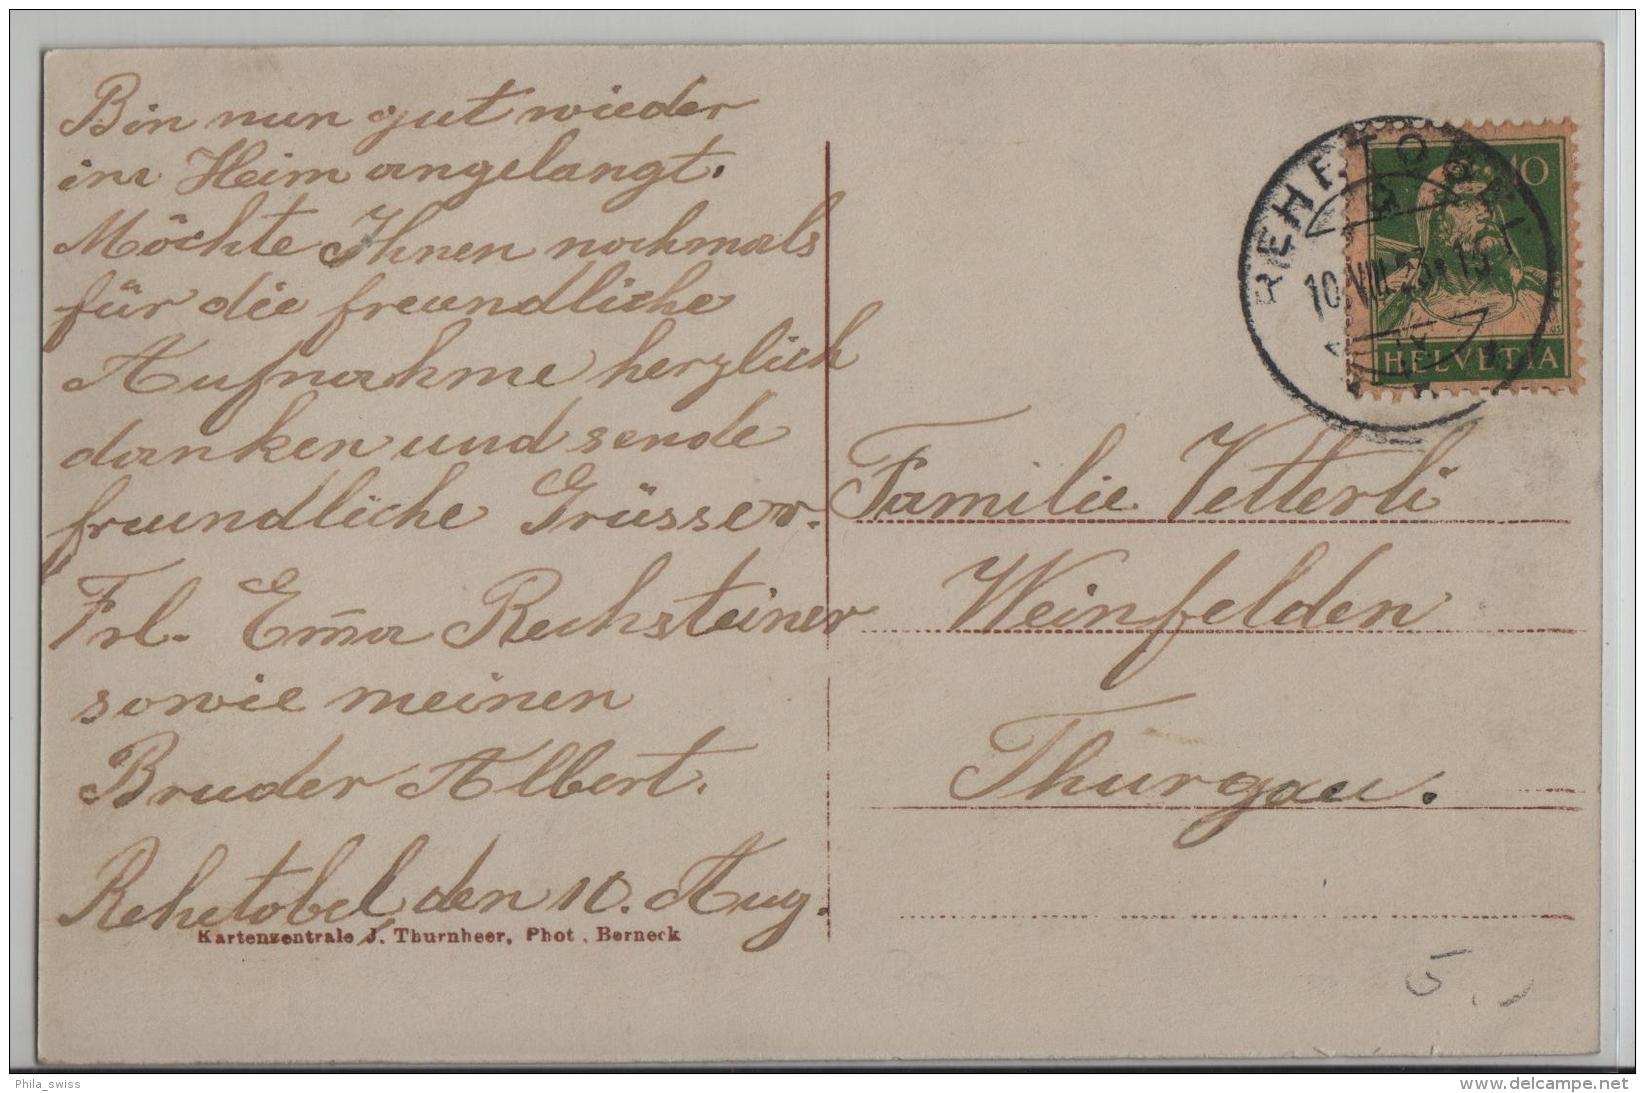 Bin nun gut wieder
im Heim angelangt.
Möchte Ihnen nochmals
für die freundliche
Aufnahme herzlich
danken und sende
freundliche Grüsse.
Frl. Em̄a Rechsteiner
sowie meinen
Bruder Albert.
Rehetobel den 10. Aug.
Kartenzentrale J. Thurnheer, Phot. Berneck
REHETOBEL
10.VIII.23
10
HELVETIA
Familie Vetterli
Weinfelden
Thurgau.
Phila_swiss
www.delcampe.net